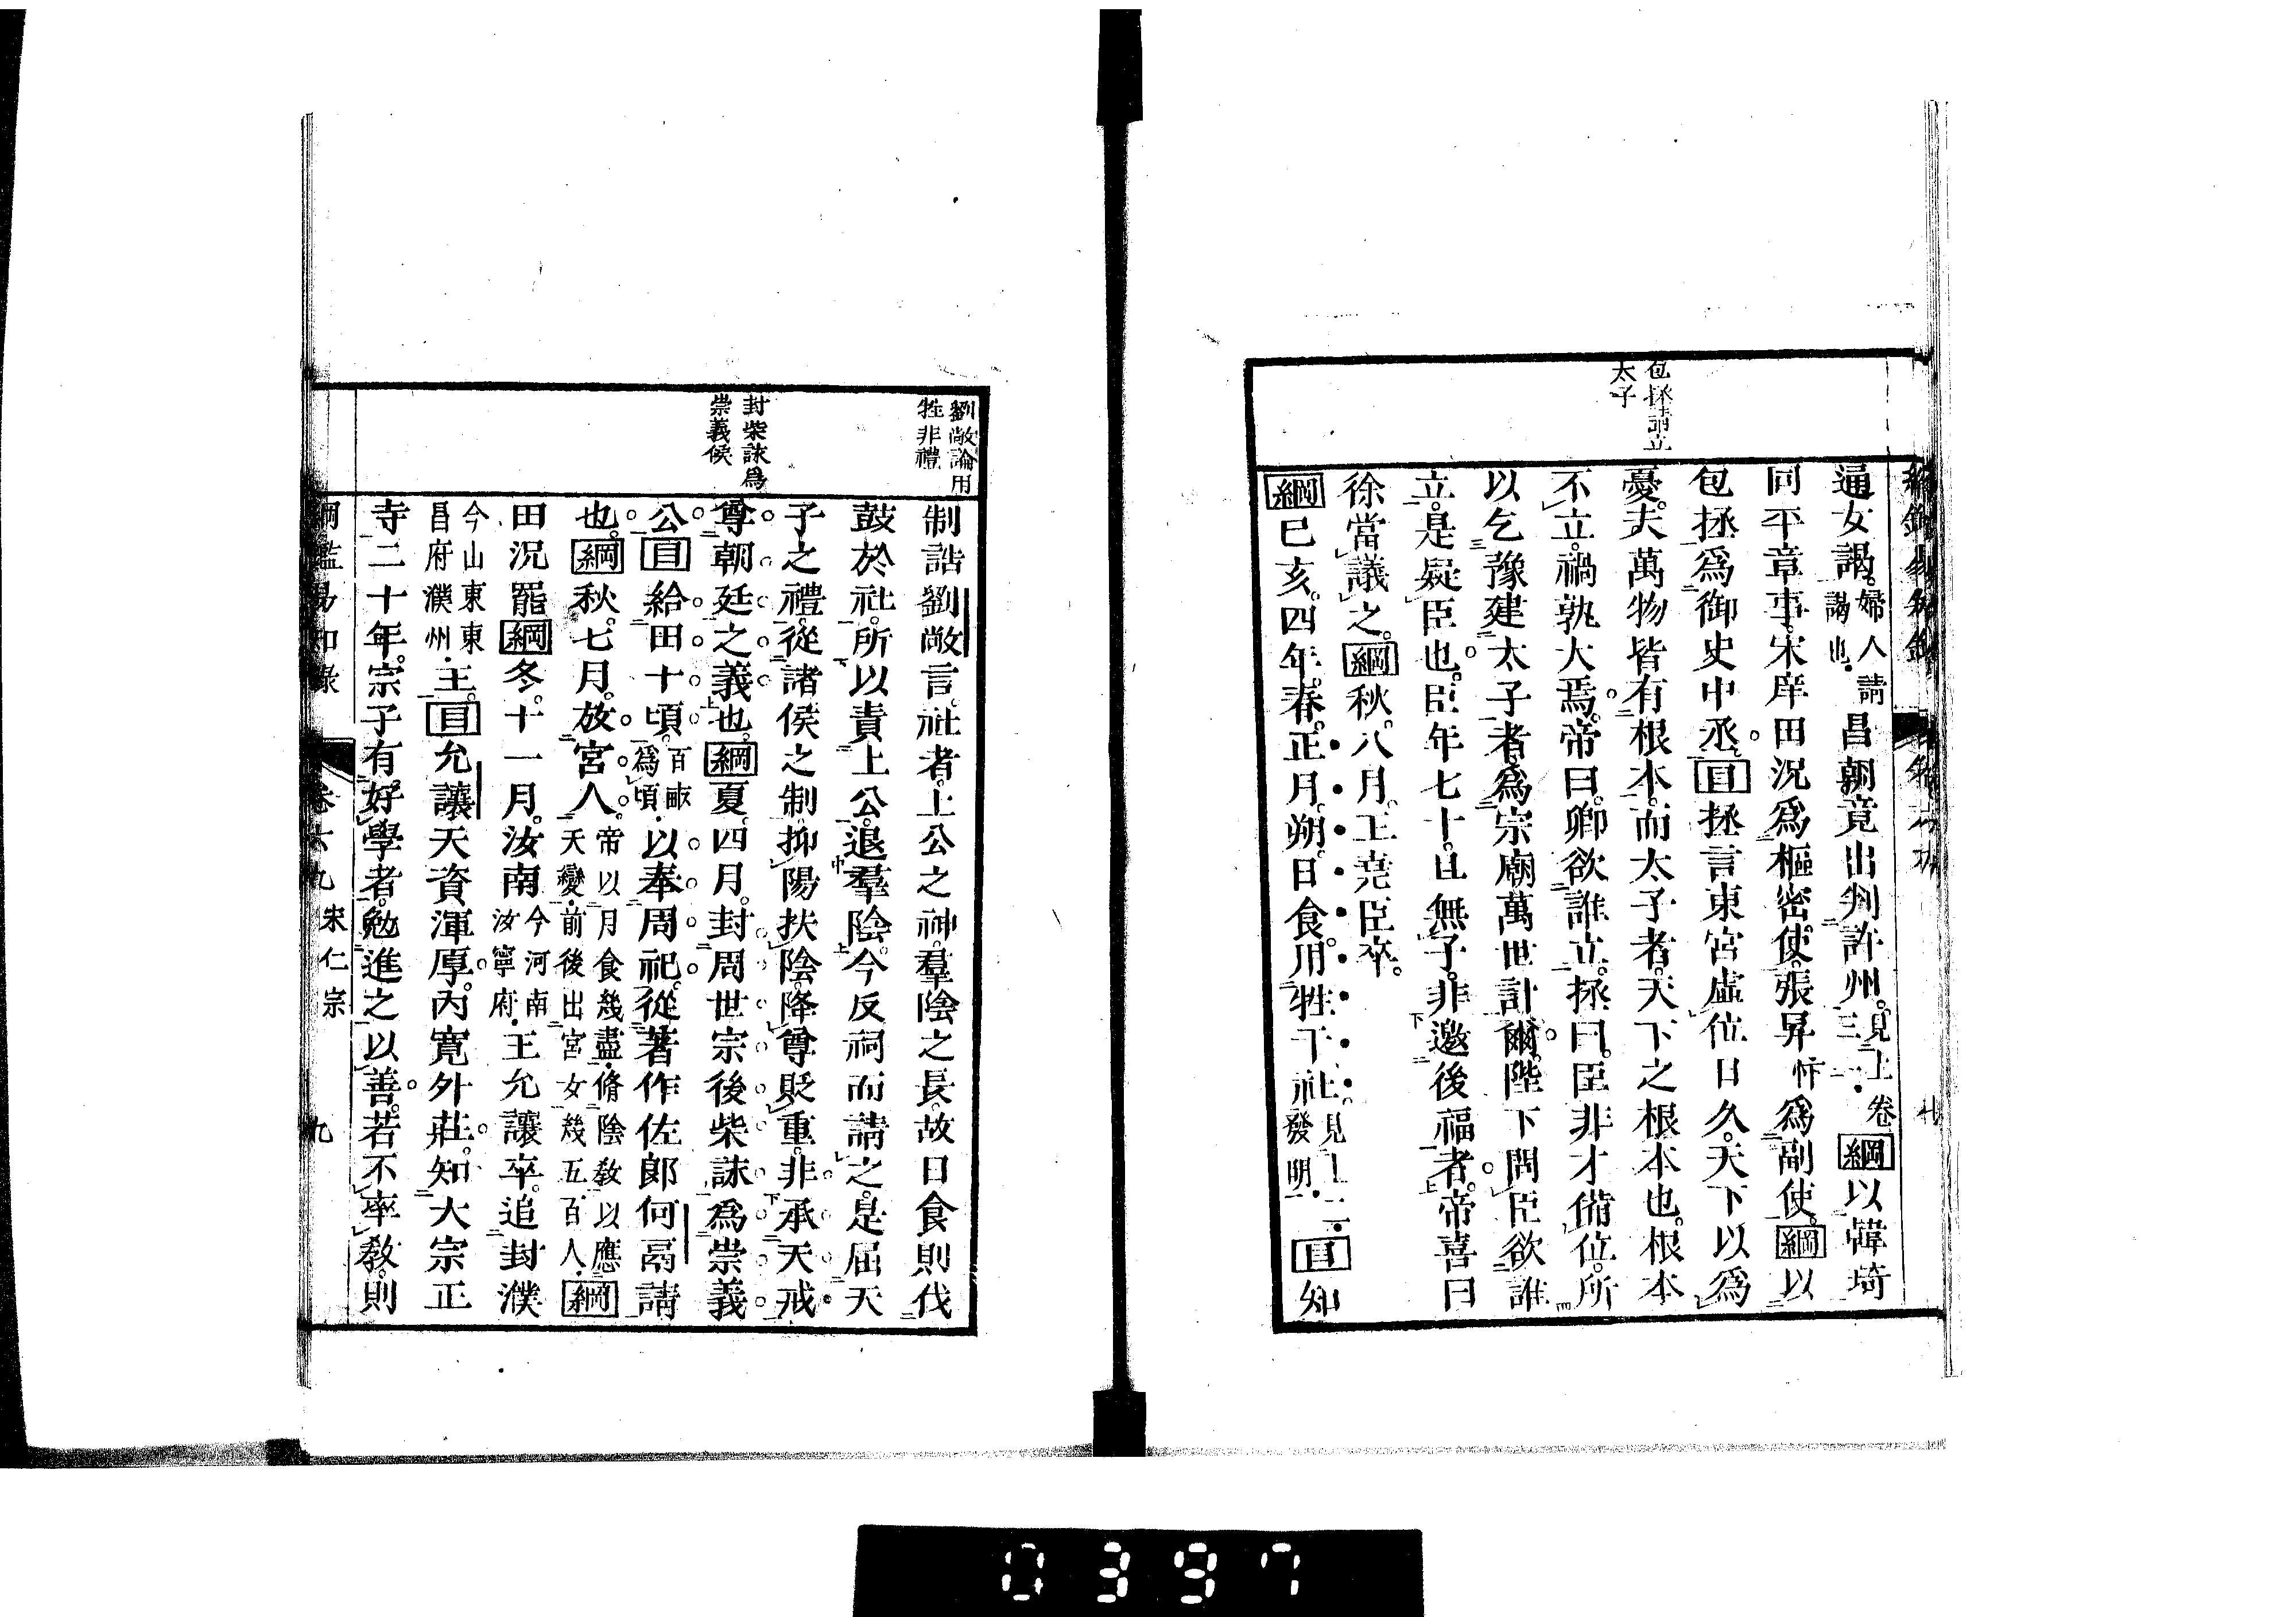 包拯請立
太子
逼女謁。婦人請謁也。昌朝竟出判許州。見上卷三一。綱以韓琦
同平章事。宋庠田況爲樞密使。張昪忭爲副使。綱以
包拯爲御史中丞。目拯言東宮虛位日久。天下以爲
憂。夫萬物皆有根本。而太子者。天下之根本也。根本
不立。禍孰大焉。帝曰。卿欲誰立。拯曰。臣非才備位。所
以乞豫建太子者。爲宗廟萬世計爾。陛下問臣欲誰
立。是疑臣也。臣年七十。且無子。非邀後福者。帝喜曰
徐當議之。綱秋。八月。王堯臣卒。
綱己亥。四年。春。正月。朔。日食。用牲于社。見上二。發明一。目知
劉敞論用
牲非禮
封柴詠爲
崇義侯
制誥劉敞言。社者。上公之神。羣陰之長。故日食則伐
鼓於社。所以責上公。退羣陰。今反祠而請之。是屈天
子之禮。從諸侯之制。抑陽扶陰。降尊貶重。非承天戒
尊朝廷之義也。綱夏。四月。封周世宗後柴詠爲崇義
公。目給田十頃。百畝爲頃。以奉周祀。從著作佐郎何鬲請
也。綱秋。七月。放宮人。帝以月食幾盡。脩陰教以應天變。前後出宮女幾五百人。綱
田況罷。綱冬。十一月。汝南今河南汝寧府。王允讓卒。追封濮
今山東東昌府濮州。王。目允讓天資渾厚。內寬外莊。知大宗正
寺二十年。宗子有好學者。勉進之以善。若不率教。則
綱鑑易知錄 卷六九 宋仁宗 九
0397